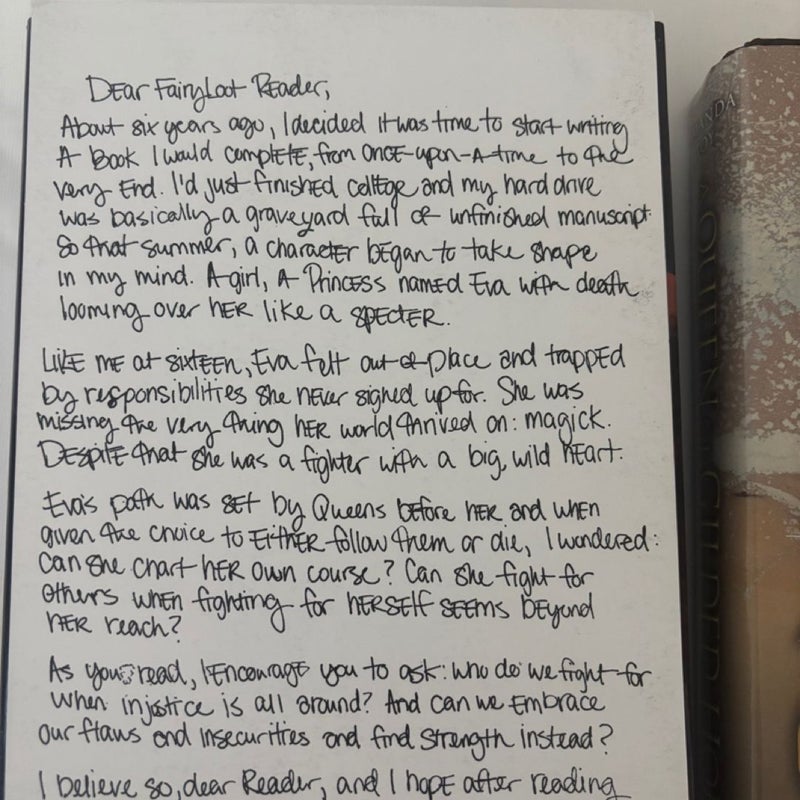 Dear FairyLoot Reader,
About six years ago, I decided it was time to start writing
A Book I would complete, from once-upon-A-time to the
very End. I'd just finished college and my hard drive
was basically a graveyard full of unfinished manuscript
So that summer, a character began to take shape
in my mind. A girl, A Princess named Eva with death
looming over her like a specter.
Like me at sixteen, Eva felt out-of-place and trapped
by responsibilities she never signed up for. She was
missing the very thing her world thrived on: magick.
Despite that she was a fighter with a big, wild heart.
Eva's path was set by Queens before her and when
given the choice to either follow them or die, I wondered:
can she chart her own course? Can she fight for
others when fighting for herself seems beyond
her reach?
As you read, I encourage you to ask: who do we fight for
when injustice is all around? And can we embrace
our flaws and insecurities and find strength instead?
I believe so, dear Reader, and I hope after reading
A QUEEN OF GILDED HO